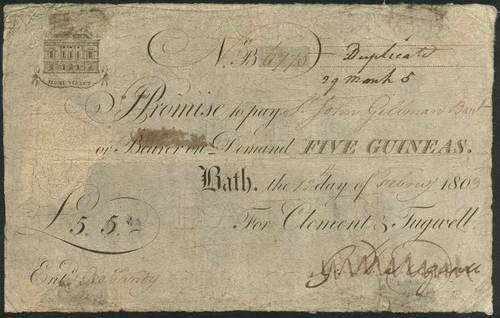 HIGH STREET
No. B 6773 Duplicate
29 March 5
I Promise to pay Sr. John Gillman Bart
or Bearer on Demand FIVE GUINEAS.
Bath. the 12 day of Febry 1803
£5.5.- For Clement & Tugwell.
Entd.